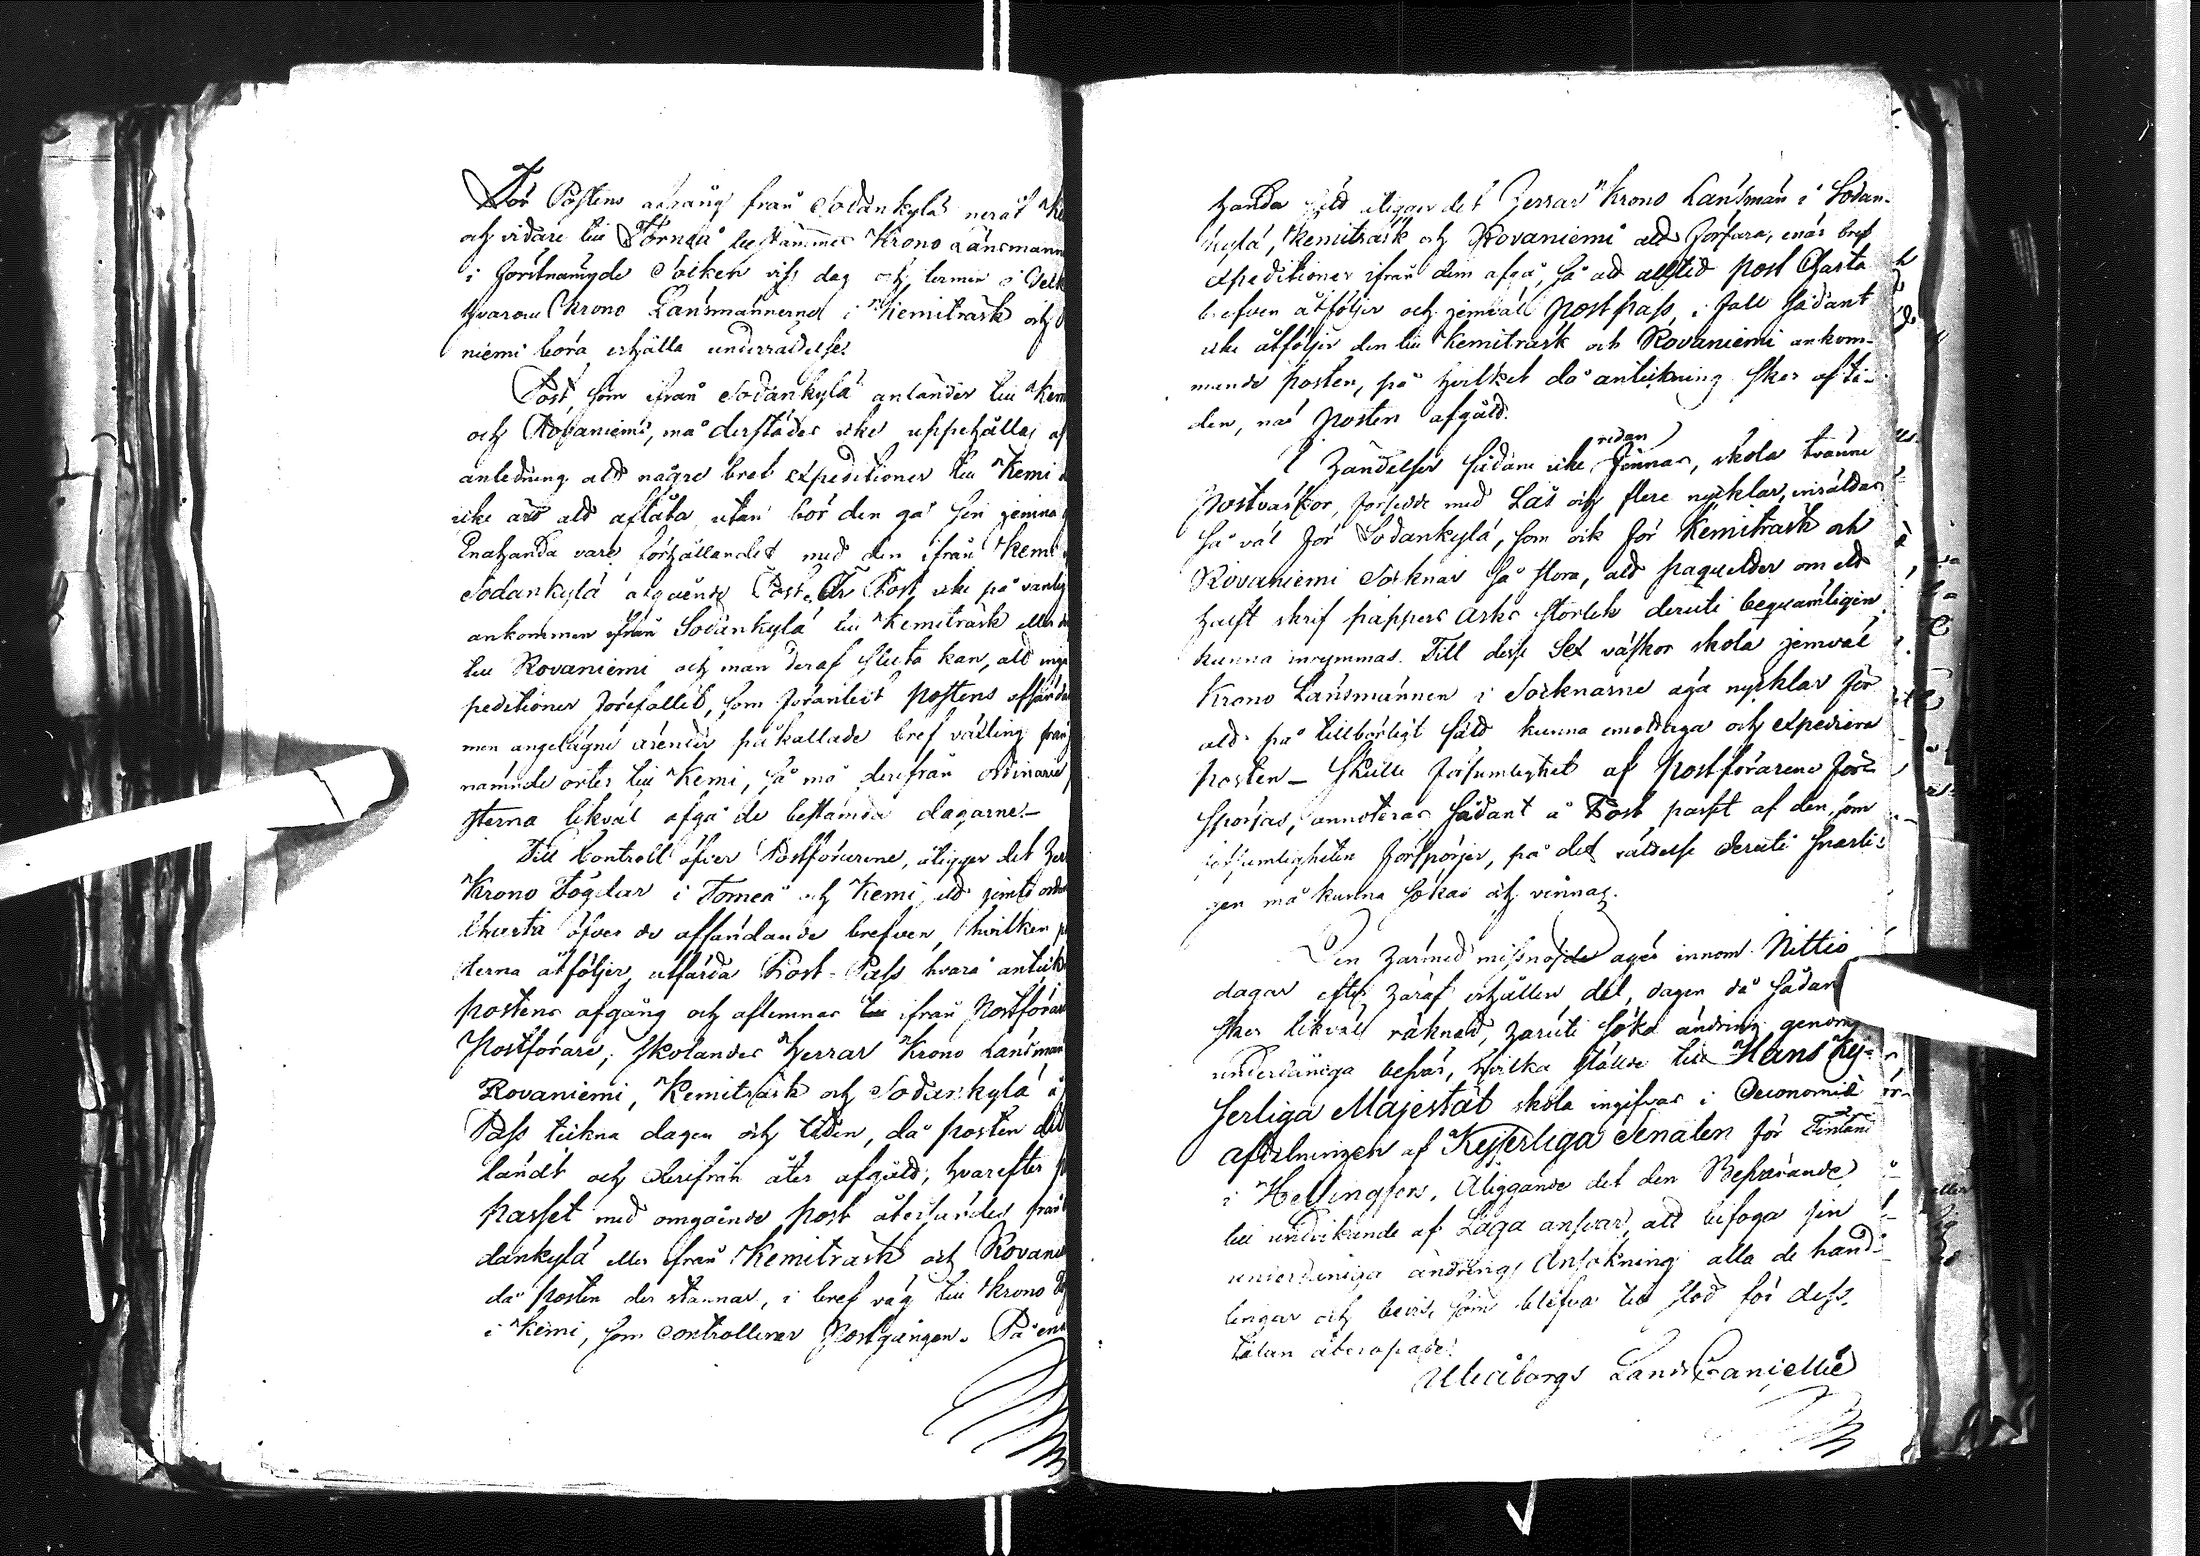 För Postens afgång från Sodankylä neråt Ke
och vidare till Torneå bestämmer Krono Länsmann
i förstnämnde Socken viss dag och termin
hvarom Krono Länsmännerne i Kemiträsk och
niemi böra erhålla underrättelse.
Post, som ifrån Sodankylä anländer till Kem
och Rovaniemi, må derstädes icke uppehållas af
anledning att några bref expeditioner till Kemi
icke äro att aflåta utan bör den gå sin jemna
Enahanda vare förhållandet med den ifrån Kemi
Sodankylä afgående Post. Är Post icke på vanlig
ankommen ifrån Sodankylä till Kemiträsk eller
till Rovaniemi och man deraf sluta kan, att inga
peditioner förefallit, som föranledt postens affärda
men angelägne ärender påkallade bref växling från
nämnde orter till Kemi, så må derifrån ordinarie
sterna likväl afgå de bestämda dagarne.
Till Controll öfver Postförarene, åligger det Her
Krono Fogdar i Torneå och Kemi, att jemte
Charta öfver de affärdande brefven, hvilken
sterna åtföljer, utfärda Post-Pass hvarå anteck
postens afgång och aflemnas till ifrån Postförare
Postförare; skolandes Herrar Krono Länsmän
Rovaniemi, Kemiträsk och Sodankylä å
Pass teckna dagen och tiden, då posten dit
ländt och derifrån åter afgått; hvarefter
passet med omgående post återsändes från
dankylä eller ifrån Kemiträsk och Rovanie
då posten der stannar, i bref väg till Krono
i Kemi, som controllerar Postgången. På ena
handa sätt åligger det Herrar Krono Länsmän i Sodan-
kylä, Kemiträsk och Rovaniemi att förfara, enär bref
expeditioner ifrån dem afgå, så att alltid post Charta
brefven åtföljer och jemväl postpass, i fall sådant
icke åtföljer den till Kemiträsk och Rovaniemi ankom-
mande posten, på hvilket då anteckning sker af ti-
den, när posten afgått.
I händelse sådane icke redan finnas, skola tvänne
Postväskor, försedde med Lås och flere nycklar, inrättas
så väl för Sodankylä, som ock för Kemiträsk och
Rovaniemi Socknar så stora, att paquetter om ett
halft skrif pappers Arks storlek deruti beqvämligen
kunna inrymmas. Till desse Sex väskor skola jemväl
Krono Länsmännen i Socknarne äga nycklar för
att på tillbörligt sätt kunna emottaga och expediera
posten – Skulle försumlighet af postförarene för-
spörjas, annoteras sådant å Post passet af den, som
försumligheten förspörjer, på det rättelse deruti snarli-
gen må kunna sökas och vinnas.
Den härmed missnöjde äger innom Nittio
dagar efter häraf erhållen del, dagen då sådan
sker likväl räknad, häruti söka ändring genom
underdåniga besvär, hvilka stälde till Hans Kej-
serliga Majestät skola ingifvas i Oeconomie
afdelningen af Kejserliga Senaten för Finland
i Helsingfors, Åliggande det den Besvärande
till undvikande af Laga ansvar, att bifoga sin
underdåniga ändrings Ansökning alla de hand-
lingar och bevis, som blifva till stöd för dess
talan åberopade.
Uleåborgs Lands Cancellie